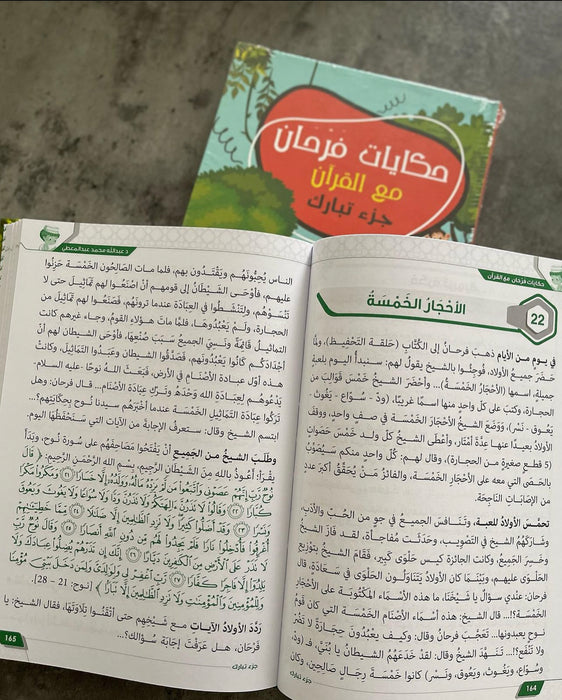 حكايات فَرْحَان
مع القرآن
جزء تبارك
حكايات فرحان مع القرآن
22
الأحْجَارُ الخَمْسَةُ
في يوم من الأيام ذهبَ فرحانُ إلى الكُتَّابِ (حَلقة التحْفيظ)، ولما
حضَرَ جميعُ الأولاد، فُوجِئُوا بالشيخ يقولُ لهم: سنبدأ اليوم بلعبةٍ
جميلةٍ، اسمها (الأحْجَارُ الخَمْسَة)... وأحْضَرَ الشيخُ خمْسَ قَوَالِبَ من
الحجارة، وكتبَ على كلّ واحدٍ منها اسمًا غريبًا، (ودّ - سُوَاع - يَغُوثَ -
يَعُوق - نَسْر)، وَوَضَعَ الشيخُ الأحْجَارَ الخَمْسَةَ في صفٍ واحدٍ، ووقفَ
الأولادُ بعيدًا عنها عدَّةَ أمْتَار، وأعْطَى الشيخُ كلَّ ولد خَمْسَ حَصَواتٍ
(5 قطعٍ صغيرةٍ من الحجارة)، وقال لهم: كُلُّ واحدٍ منكم سيُصَوِّبُ
بالحَصَى التي معه على الأحْجَارِ الخَمْسَة، والفائزُ مَنْ يُحَقِّقُ أكبرَ عددٍ
من الإصَاباتِ النَاجِحَة.
تحمَّسَ الأولادُ للعبة، وتَنَافَسَ الجميعُ في جوٍ من الحُبّ والأدَب،
وشَارَكَهُمُ الشيخُ في التَصْويب، وحَدَثَت مُفاجأة، لقد فَازَ الشيخُ
وخَسِرَ الجميعُ، وكانت الجائزة كيس حَلْوَى كبير، فَقَامَ الشيخُ بتَوْزيعِ
الحَلْوَى عليهم، وبَيْنَمَا كان الأولادُ يَتَنَاوَلُون الحَلْوَى في سَعَادَة، قال
فرحان: عندي سؤالٌ يا شَيْخَنَا، ما هذه الأسْمَاء المَكْتُوبَة على الأحْجَار
الخَمْسَة؟!... قال الشيخ: هذه أسْمَاء الأصْنَام الخَمْسَة التي كان قومُ
نوح يعبدونها... تَعَجَّبَ فرحانُ وقال: وكيف يعْبُدُونَ حِجَارَةً لا تَضُرُّ
ولا تَنْفَع؟!... تَنَهَّدَ الشيخُ وقال: لقد خَدَعَهُمُ الشيطانُ يا بُنَيّ، فـ(ودّ،
وسُوَاع، ويَغُوث، ويَعُوق، ونَسْر) كانوا خَمْسَةَ رِجَالٍ صَالِحِين، وكان
164
جزء تبارك
د عبدالله محمد عبدالمعطي
الناس يُحِبُّونَهُم ويَقْتَدُون بهم، فلما ماتَ الصَالِحُون الخَمْسَة حَزِنُوا
عليهم، فأوْحَى الشَيْطَانُ إلى قومهم أنْ اصْنَعُوا لهم تَمَاثيل حتى لا
تَنْسَوْهُم، ولتَنْشَطُوا في العِبَادَة عندما ترونَهُم، فَصَنَعُوا لهم تَمَاثيلَ من
الحجارة، ولَمْ يَعْبُدُوهَا، فلمَّا ماتَ هؤلاءِ القومُ، وجاء غيرهم كانت
التماثيلُ قَائِمَةً ونَسِيَ الجميعُ سَبَبَ صُنْعِهَا، فأوْحَى الشيطان لهم أنَّ
أجْدَادَكُم كَانُوا يَعْبُدُونَهم، فَصَدَّقُوا الشيطانَ وعَبَدُوا التَمَاثيل، وكانتْ
هذه أوَّل عبادة الأصْنَام في الأرض، فَبَعَثَ اللهُ نوحًا -عليه السلام-
يَدْعُوهُم لعِبَادَةِ اللهِ وَحْدَهُ وتَرْكِ عِبَادَةِ الأصْنَام... قال فرحان: وهل
تَرَكُوا عِبَادَة التَمَاثِيل الخَمْسَة عندما أخْبَرَهم سيدنا نوح بحِكَايَتِهم؟...
ابتسم الشيخ وقال: ستعرفُ الإجابة من الآيات التي ستَحْفَظُهَا اليوم.
وطَلَبَ الشيخُ من الجَميعِ أنْ يَفْتَحُوا مَصَاحِفَهُم على سُورة نُوح، وبَدَأ
يقْرأ: أعُوذُ باللهِ مِنَ الشَيْطَانِ الرَّجِيم، بِسْمِ اللهِ الرَّحْمَنِ الرَّحِيم: ﴿ قَالَ
نُوحٌ رَّبِّ إِنَّهُمْ عَصَوْنِي وَاتَّبَعُوا مَن لَّمْ يَزِدْهُ مَالُهُ وَوَلَدُهُ إِلَّا خَسَارًا ﴿٢١﴾ وَمَكَرُوا مَكْرًا
كُبَّارًا ﴿٢٢﴾ وَقَالُوا لَا تَذَرُنَّ آلِهَتَكُمْ وَلَا تَذَرُنَّ وَدًّا وَلَا سُوَاعًا وَلَا يَغُوثَ وَيَعُوقَ
وَنَسْرًا ﴿٢٣﴾ وَقَدْ أَضَلُّوا كَثِيرًا وَلَا تَزِدِ الظَّالِمِينَ إِلَّا ضَلَالًا ﴿٢٤﴾ مِّمَّا خَطِيئَاتِهِمْ
أُغْرِقُوا فَأُدْخِلُوا نَارًا فَلَمْ يَجِدُوا لَهُم مِّن دُونِ اللَّهِ أَنصَارًا ﴿٢٥﴾ وَقَالَ نُوحٌ رَّبِّ
لَا تَذَرْ عَلَى الْأَرْضِ مِنَ الْكَافِرِينَ دَيَّارًا ﴿٢٦﴾ إِنَّكَ إِن تَذَرْهُمْ يُضِلُّوا عِبَادَكَ وَلَا
يَلِدُوا إِلَّا فَاجِرًا كَفَّارًا ﴿٢٧﴾ رَّبِّ اغْفِرْ لِي وَلِوَالِدَيَّ وَلِمَن دَخَلَ بَيْتِيَ مُؤْمِنًا
وَلِلْمُؤْمِنِينَ وَالْمُؤْمِنَاتِ وَلَا تَزِدِ الظَّالِمِينَ إِلَّا تَبَارًا ﴾ [نوح: 21 - 28]
رَدَّدَ الأولادُ الآيات مع شَيْخِهِم حتى أتْقَنُوا تِلَاوَتَهَا، فقال الشيخ: يا
فَرْحَان، هل عَرَفْتَ إجَابَة سُؤالك؟...
165
جزء تبارك